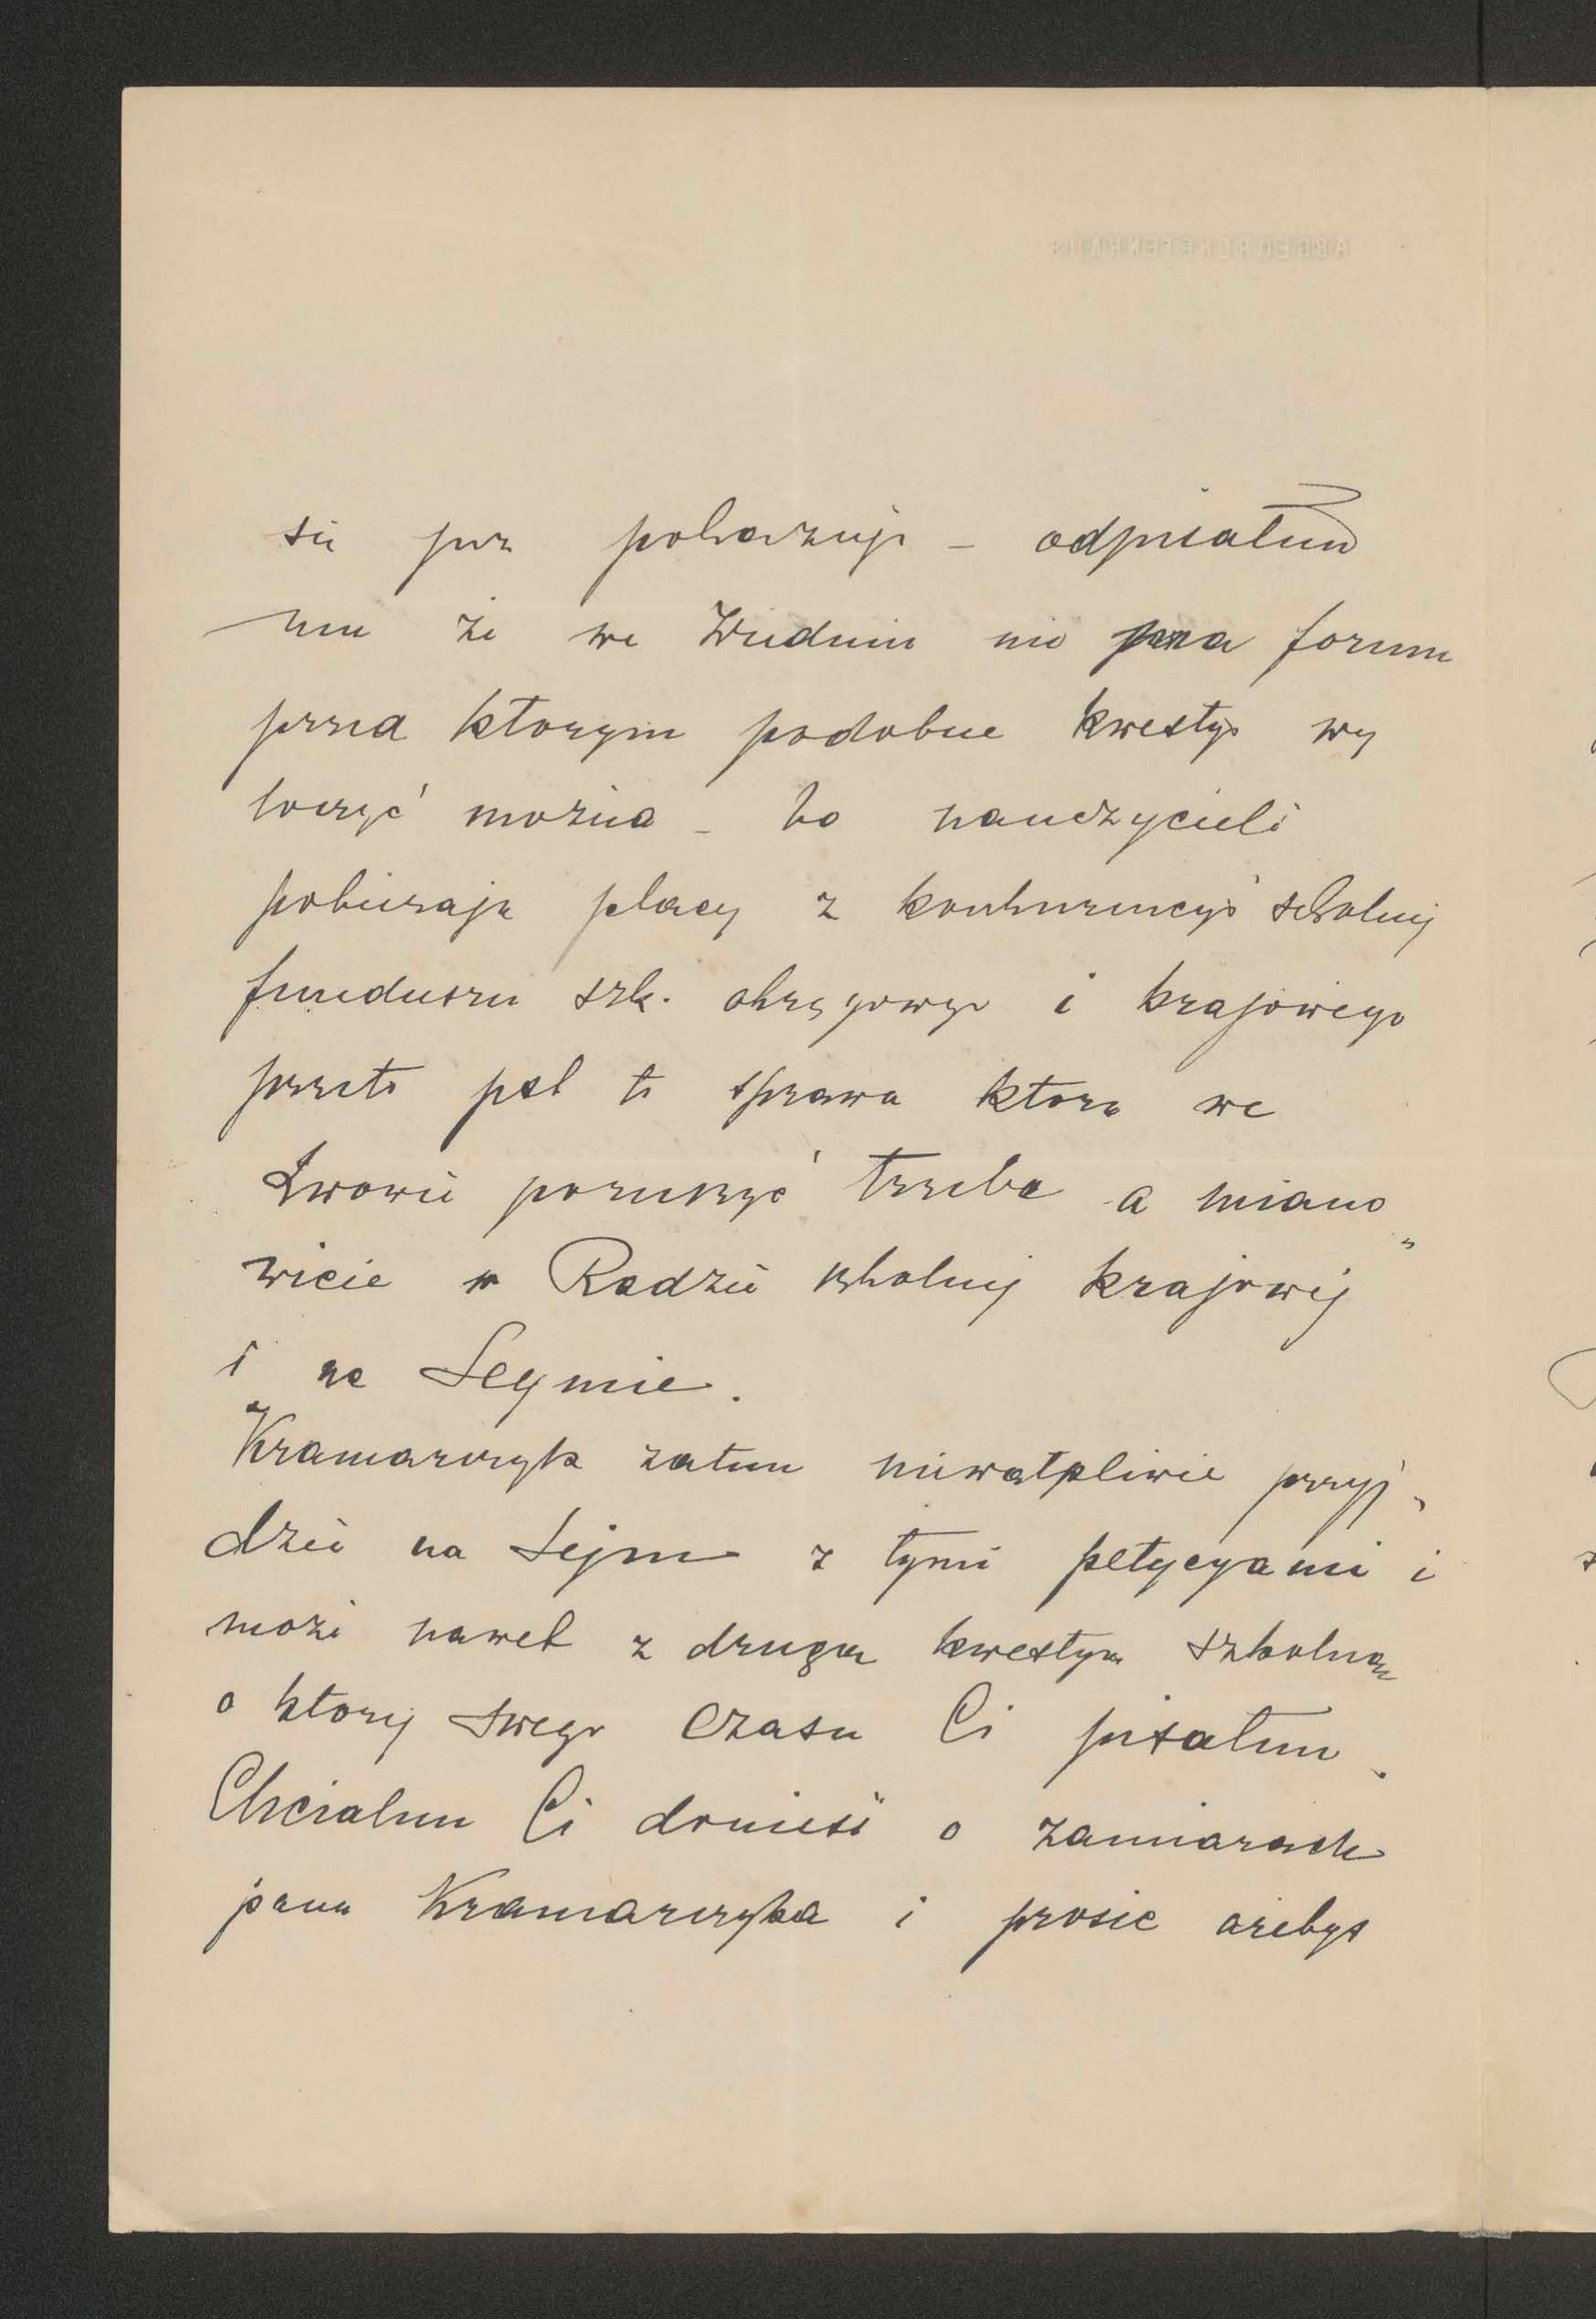 się już pokazuje – odpisałem
mu że we Wiedniu nie ma forum
przed ktorym podobne kwestye wy
toczyć można – bo nauczyciele
pobierają płacę z konkurencyi szkolnej
funduszu szk. okręgowego i krajowego
przeto jest to sprawa ktorą we
Lwowie poruszyć trzeba a miano
wicie w Radzie szkolnej krajowej
i na Seymie.
Kramarczyk zatem niewątpliwie przyj-
dzie na Sejm z tymi petycyami i
może nawet z drugą kwestyą szkolną
o ktorej swego czasu Ci pisałem.
Chciałem Ci donieść o zamiarach
pana Kramarczyka i prosic ażebyś